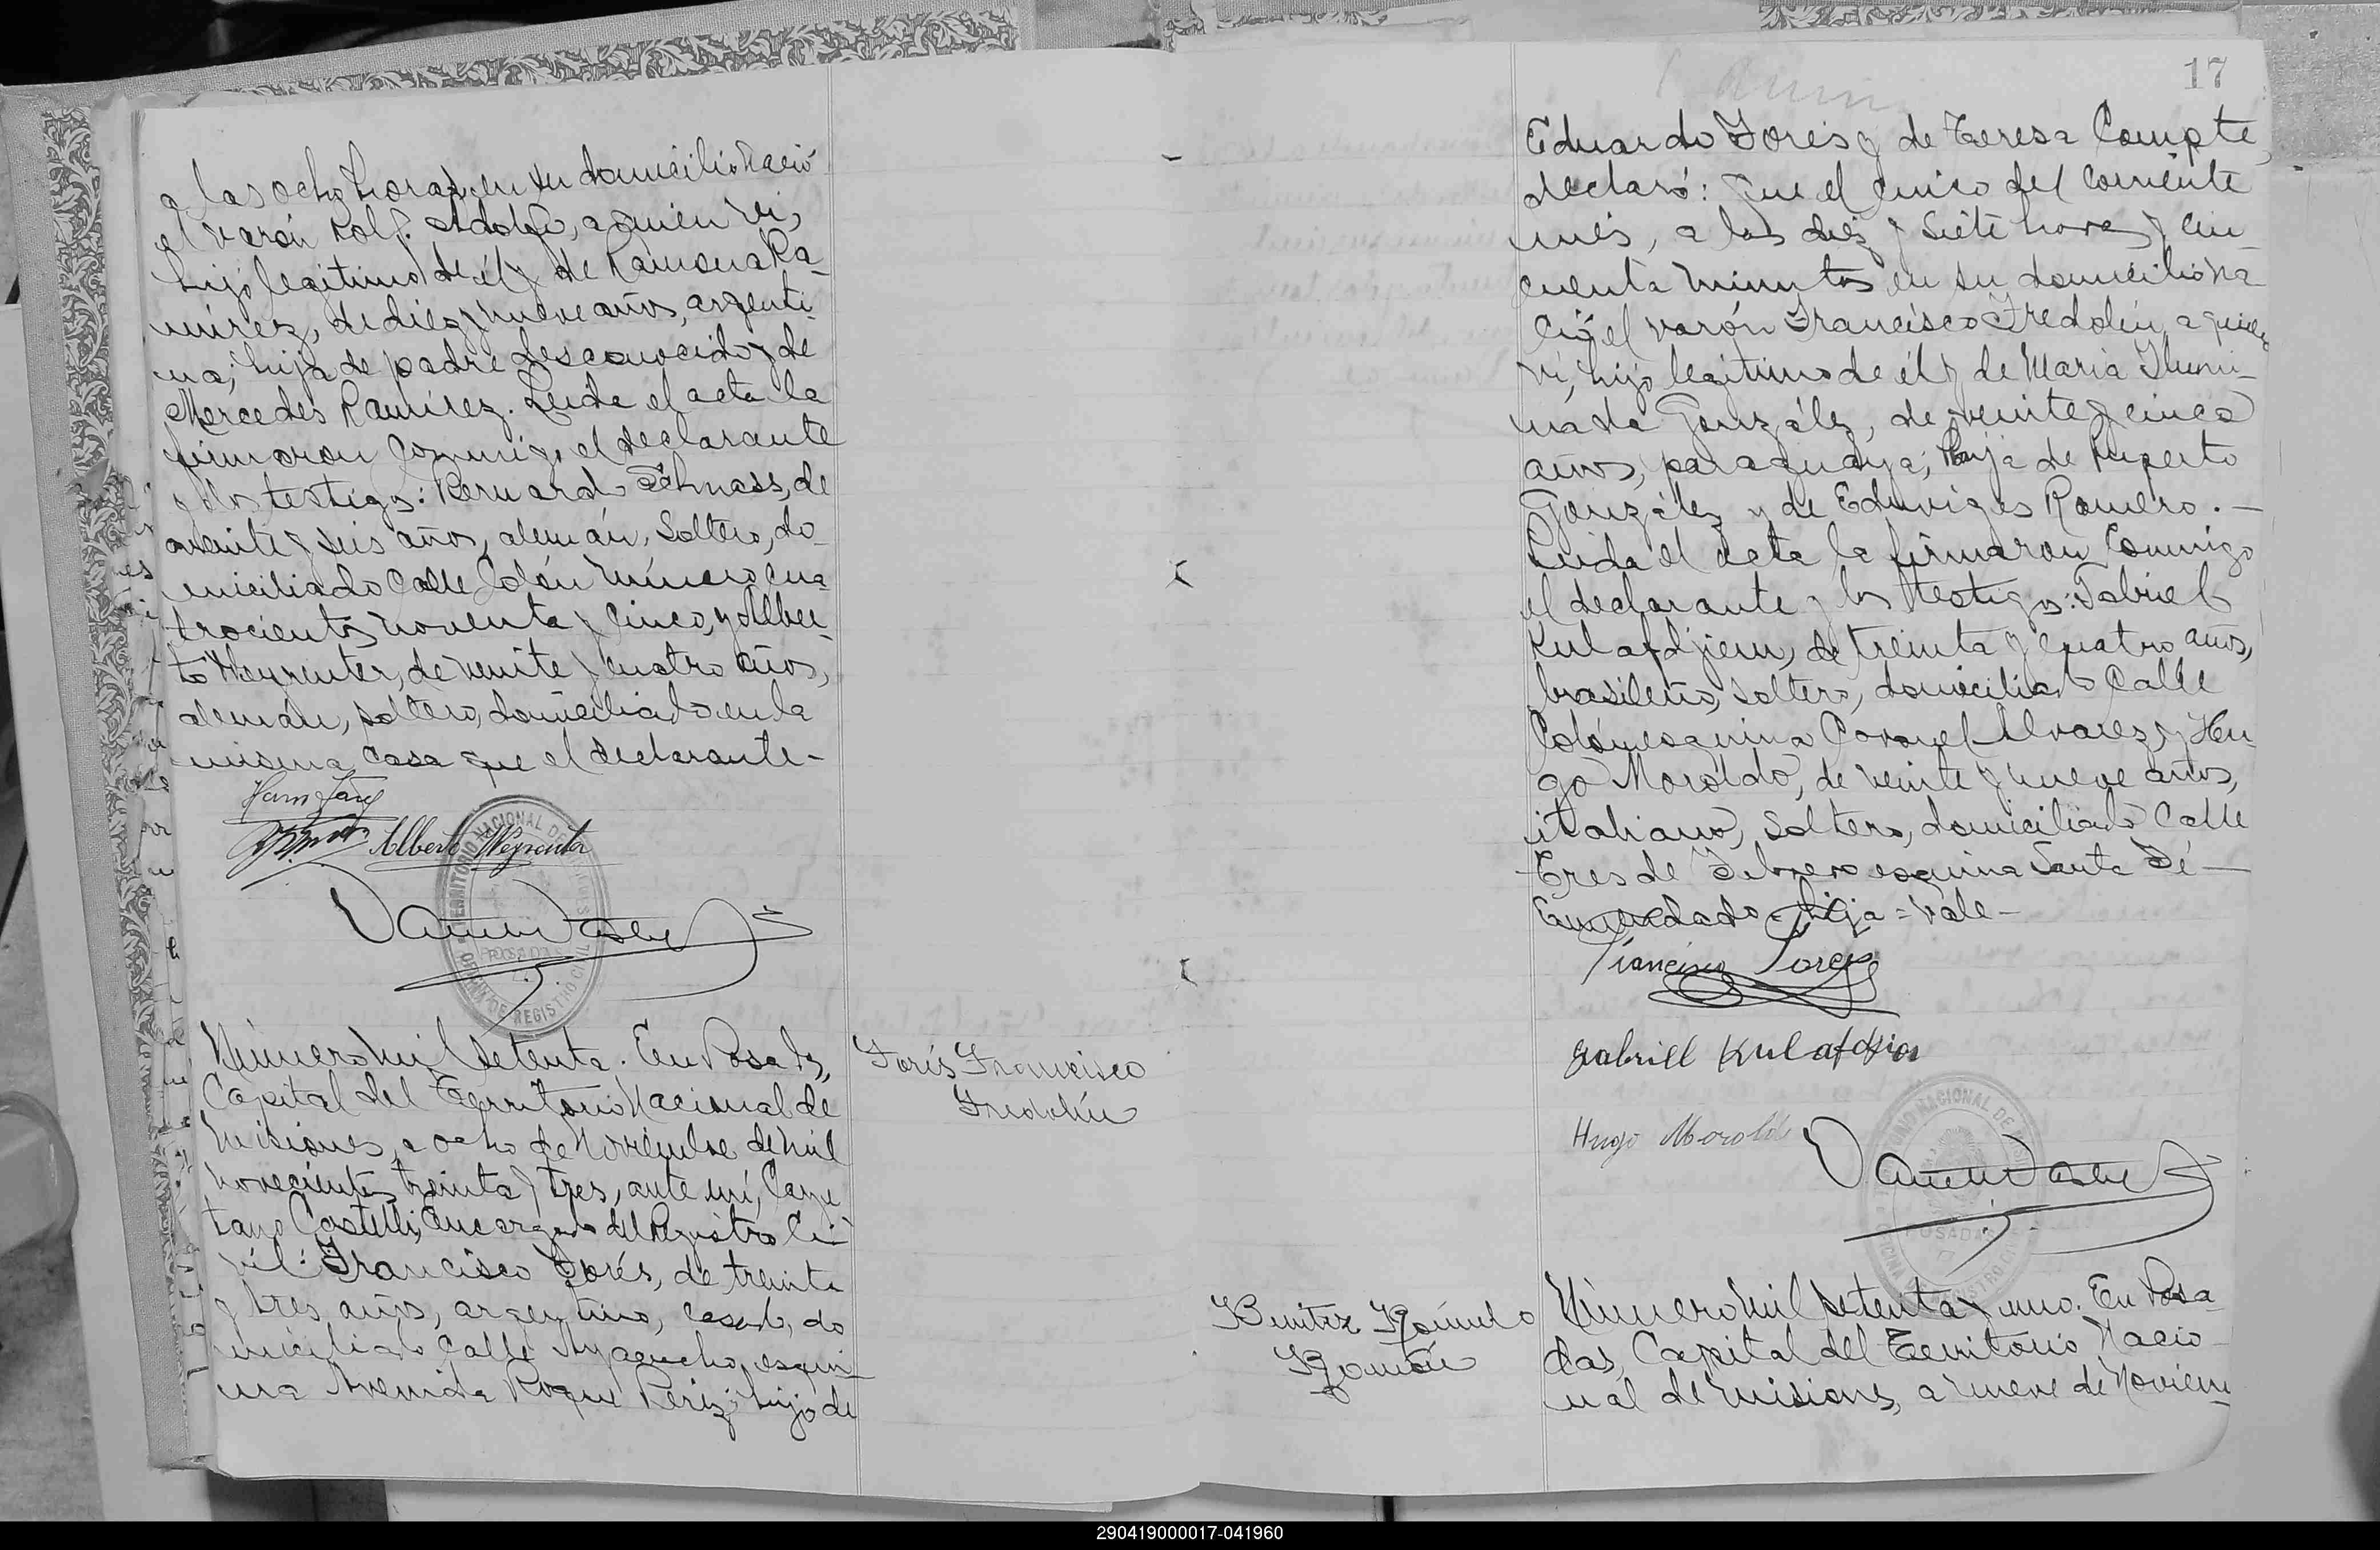 a las ocho horas, en su domicilio nació
el varón Rolf Adolfo, a quien vi,
hijo legítimo de él y de Ramona Ra-
mírez, de diez y nueve años, argenti-
na; hija de padre desconocido y de
Mercedes Ramírez. Leida el acta la
firmaron conmigo el declarante
y los testigos: Bernardo Schnass, de
veinte y seis años, alemán, soltero, do-
miciliado calle Colón número cua-
trocientos noventa y cinco, y Alber-
to Weyreuter, de veinte y cuatro años,
alemán, soltero, domiciliado en la
misma casa que el declarante-
Alberto Weyreuter
TERRITORIO NACIONAL DE MISIONES
POSADAS
OFICINA DE REGISTRO CIVIL
Número mil setenta. En Posadas,
Capital del Territorio Nacional de
Misiones, a ocho de Noviembre de mil
novecientos treinta y tres, ante mí, Caye
tano Castelli, Encargado del Registro Ci-
vil: Francisco Forés, de treinta
y tres años, argentino, casado, do
miciliado calle Ayacucho esqui-
na Avenida Roque Pérez; hijo de
Forés Francisco
Fredolín
17
Eduardo Forés y de Teresa Compte,
declaró: que el cinco del corriente
mes, a las diez y siete horas y cin-
cuenta minutos en su domicilio na
ció el varón Francisco Fredolín, a quien
vi, hijo legítimo de él y de María Ilumi-
nada González, de veinte y cinco
años, paraguaya; hija de Ruperto
González y de Eduviges Romero.-
Leida el acta la firmaron conmigo
el declarante y los testigos: Gabriel
Kulafdjien, de treinta y cuatro años,
brasileño, soltero, domiciliado calle
Colón esquina Coronel Alvarez, y Hu-
go Moroldo, de veinte y nueve años,
italiano, soltero, domiciliado calle
Tres de Febrero esquina Santa Fé-
Enmendado = hija = Vale-
Francisco Fores
Gabriel Kulafdjian
Hugo Moroldo
TERRITORIO NACIONAL DE MISIONES
POSADAS
OFICINA DE REGISTRO CIVIL
Benitez Rómulo
Román
Número mil setenta y uno. En Posa-
das, Capital del Territorio Nacio-
nal de Misiones, a nueve de Noviem-
290419000017-041960